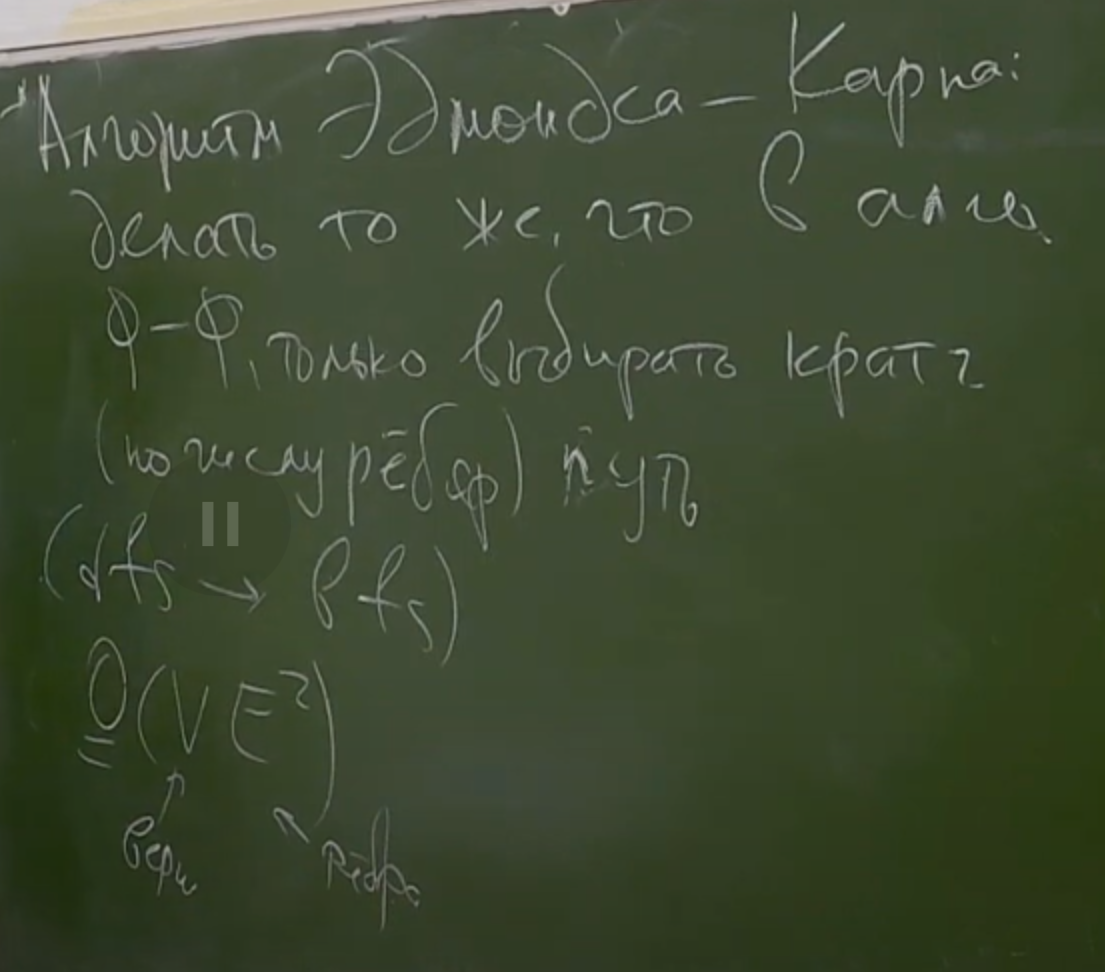 Алгоритм Эдмондса – Карпа:
делать то же, что в алг.
Ф–Ф, только выбирать кратч
(по числу рёбер) путь
(dfs → bfs)
O(VE²)
верш рёбра